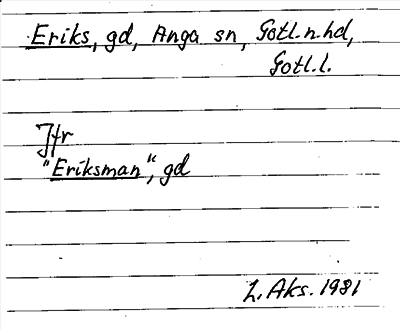 Eriks, gd, Anga sn, Gotl. n. hd,
Gotl. l.
Jfr
"Eriksman", gd
L. Aks. 1981